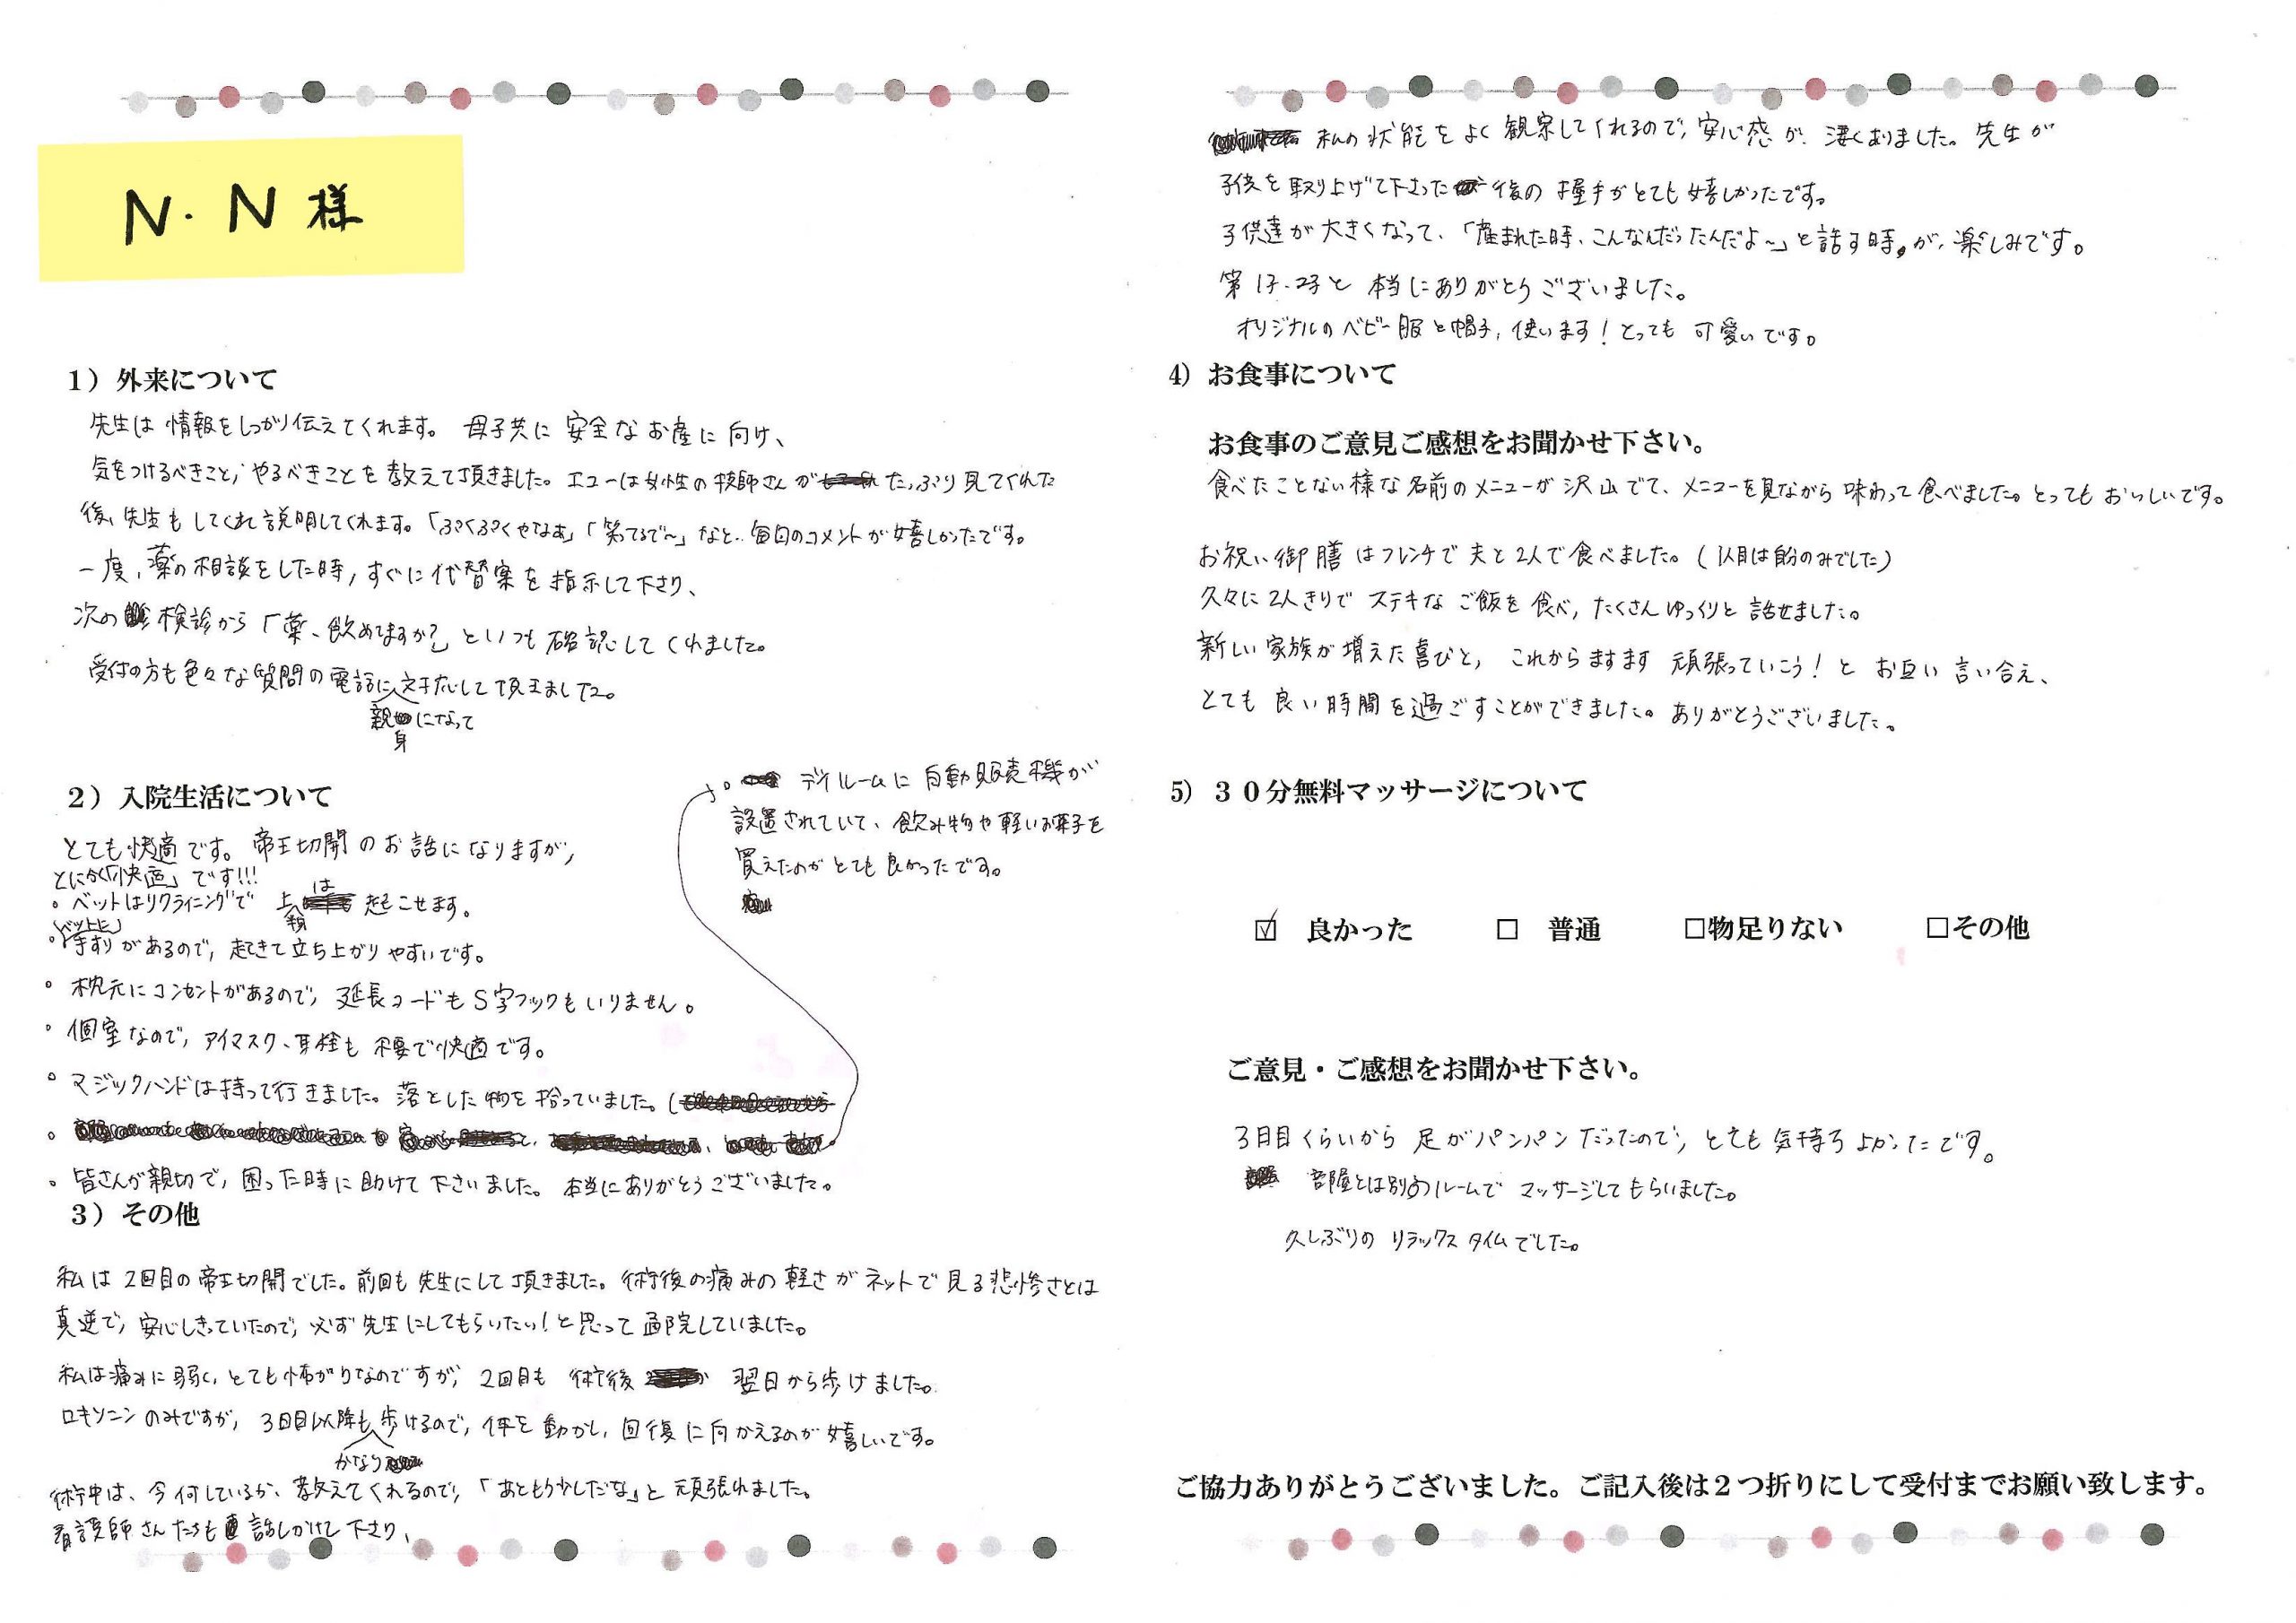 N・N様
1）外来について
先生は情報をしっかり伝えてくれます。母子共に安全なお産に向け、
気をつけるべきこと、やるべきことを教えて頂きました。エコーは女性の技師さんがたっぷり見てくれた
後、先生もしてくれ説明してくれます。「ぷくぷくやなぁ」「笑ってるで〜」など‥毎回のコメントが嬉しかったです。
一度、薬の相談をした時、すぐに代替案を指示して下さり、
次の検診から「薬、飲めてますか？」といつも確認してくれました。
受付の方も色々な質問の電話に親身になって対応して頂きました。
2）入院生活について
とても快適です。帝王切開のお話になりますが、
とにかく「快適」です!!!
。ベットはリクライニングで上半身は起こせます。
。ベットに手すりがあるので、起きて立ち上がりやすいです。
。枕元にコンセントがあるので、延長コードもS字フックもいりません。
。個室なので、アイマスク、耳栓も不要で快適です。
。マジックハンドは持って行きました。落とした物を拾っていました。
。デイルームに自動販売機が
設置されていて、飲み物や軽いお菓子を
買えたのがとても良かったです。
。皆さんが親切で、困った時に助けて下さいました。本当にありがとうございました。
3）その他
私は2回目の帝王切開でした。前回も先生にして頂きました。術後の痛みの軽さがネットで見る悲惨さとは
真逆で、安心しきっていたので、必ず先生にしてもらいたい！と思って通院していました。
私は痛みに弱く、とても怖がりなのですが、2回目も術後翌日から歩けました。
ロキソニンのみですが、3日目以降もかなり歩けるので、体を動かし、回復に向かえるのが嬉しいです。
術中は、今何しているか、教えてくれるので、「あともう少しだな」と頑張れました。
看護師さんたちも話しかけて下さり、
私の状態をよく観察してくれるので、安心感が凄くありました。先生が
子供を取り上げて下さった後の握手がとても嬉しかったです。
子供達が大きくなって、「産まれた時、こんなんだったんだよ〜」と話す時が、楽しみです。
第1子・2子と本当にありがとうございました。
オリジナルのベビー服と帽子、使います！とっても可愛いです。
4）お食事について
お食事のご意見ご感想をお聞かせ下さい。
食べたことない様な名前のメニューが沢山でて、メニューを見ながら味わって食べました。とってもおいしいです。
お祝い御膳はフレンチで夫と2人で食べました。（1人目は自分のみでした）
久々に2人きりでステキなご飯を食べ、たくさんゆっくりと話せました。
新しい家族が増えた喜びと、これからますます頑張っていこう！とお互い言い合え、
とても良い時間を過ごすことができました。ありがとうございました。
5）３０分無料マッサージについて
☑ 良かった □ 普通 □物足りない □その他
ご意見・ご感想をお聞かせ下さい。
3日目くらいから足がパンパンだったので、とても気持ちよかったです。
部屋とは別のルームでマッサージしてもらいました。
久しぶりのリラックスタイムでした。
ご協力ありがとうございました。ご記入後は２つ折りにして受付までお願い致します。